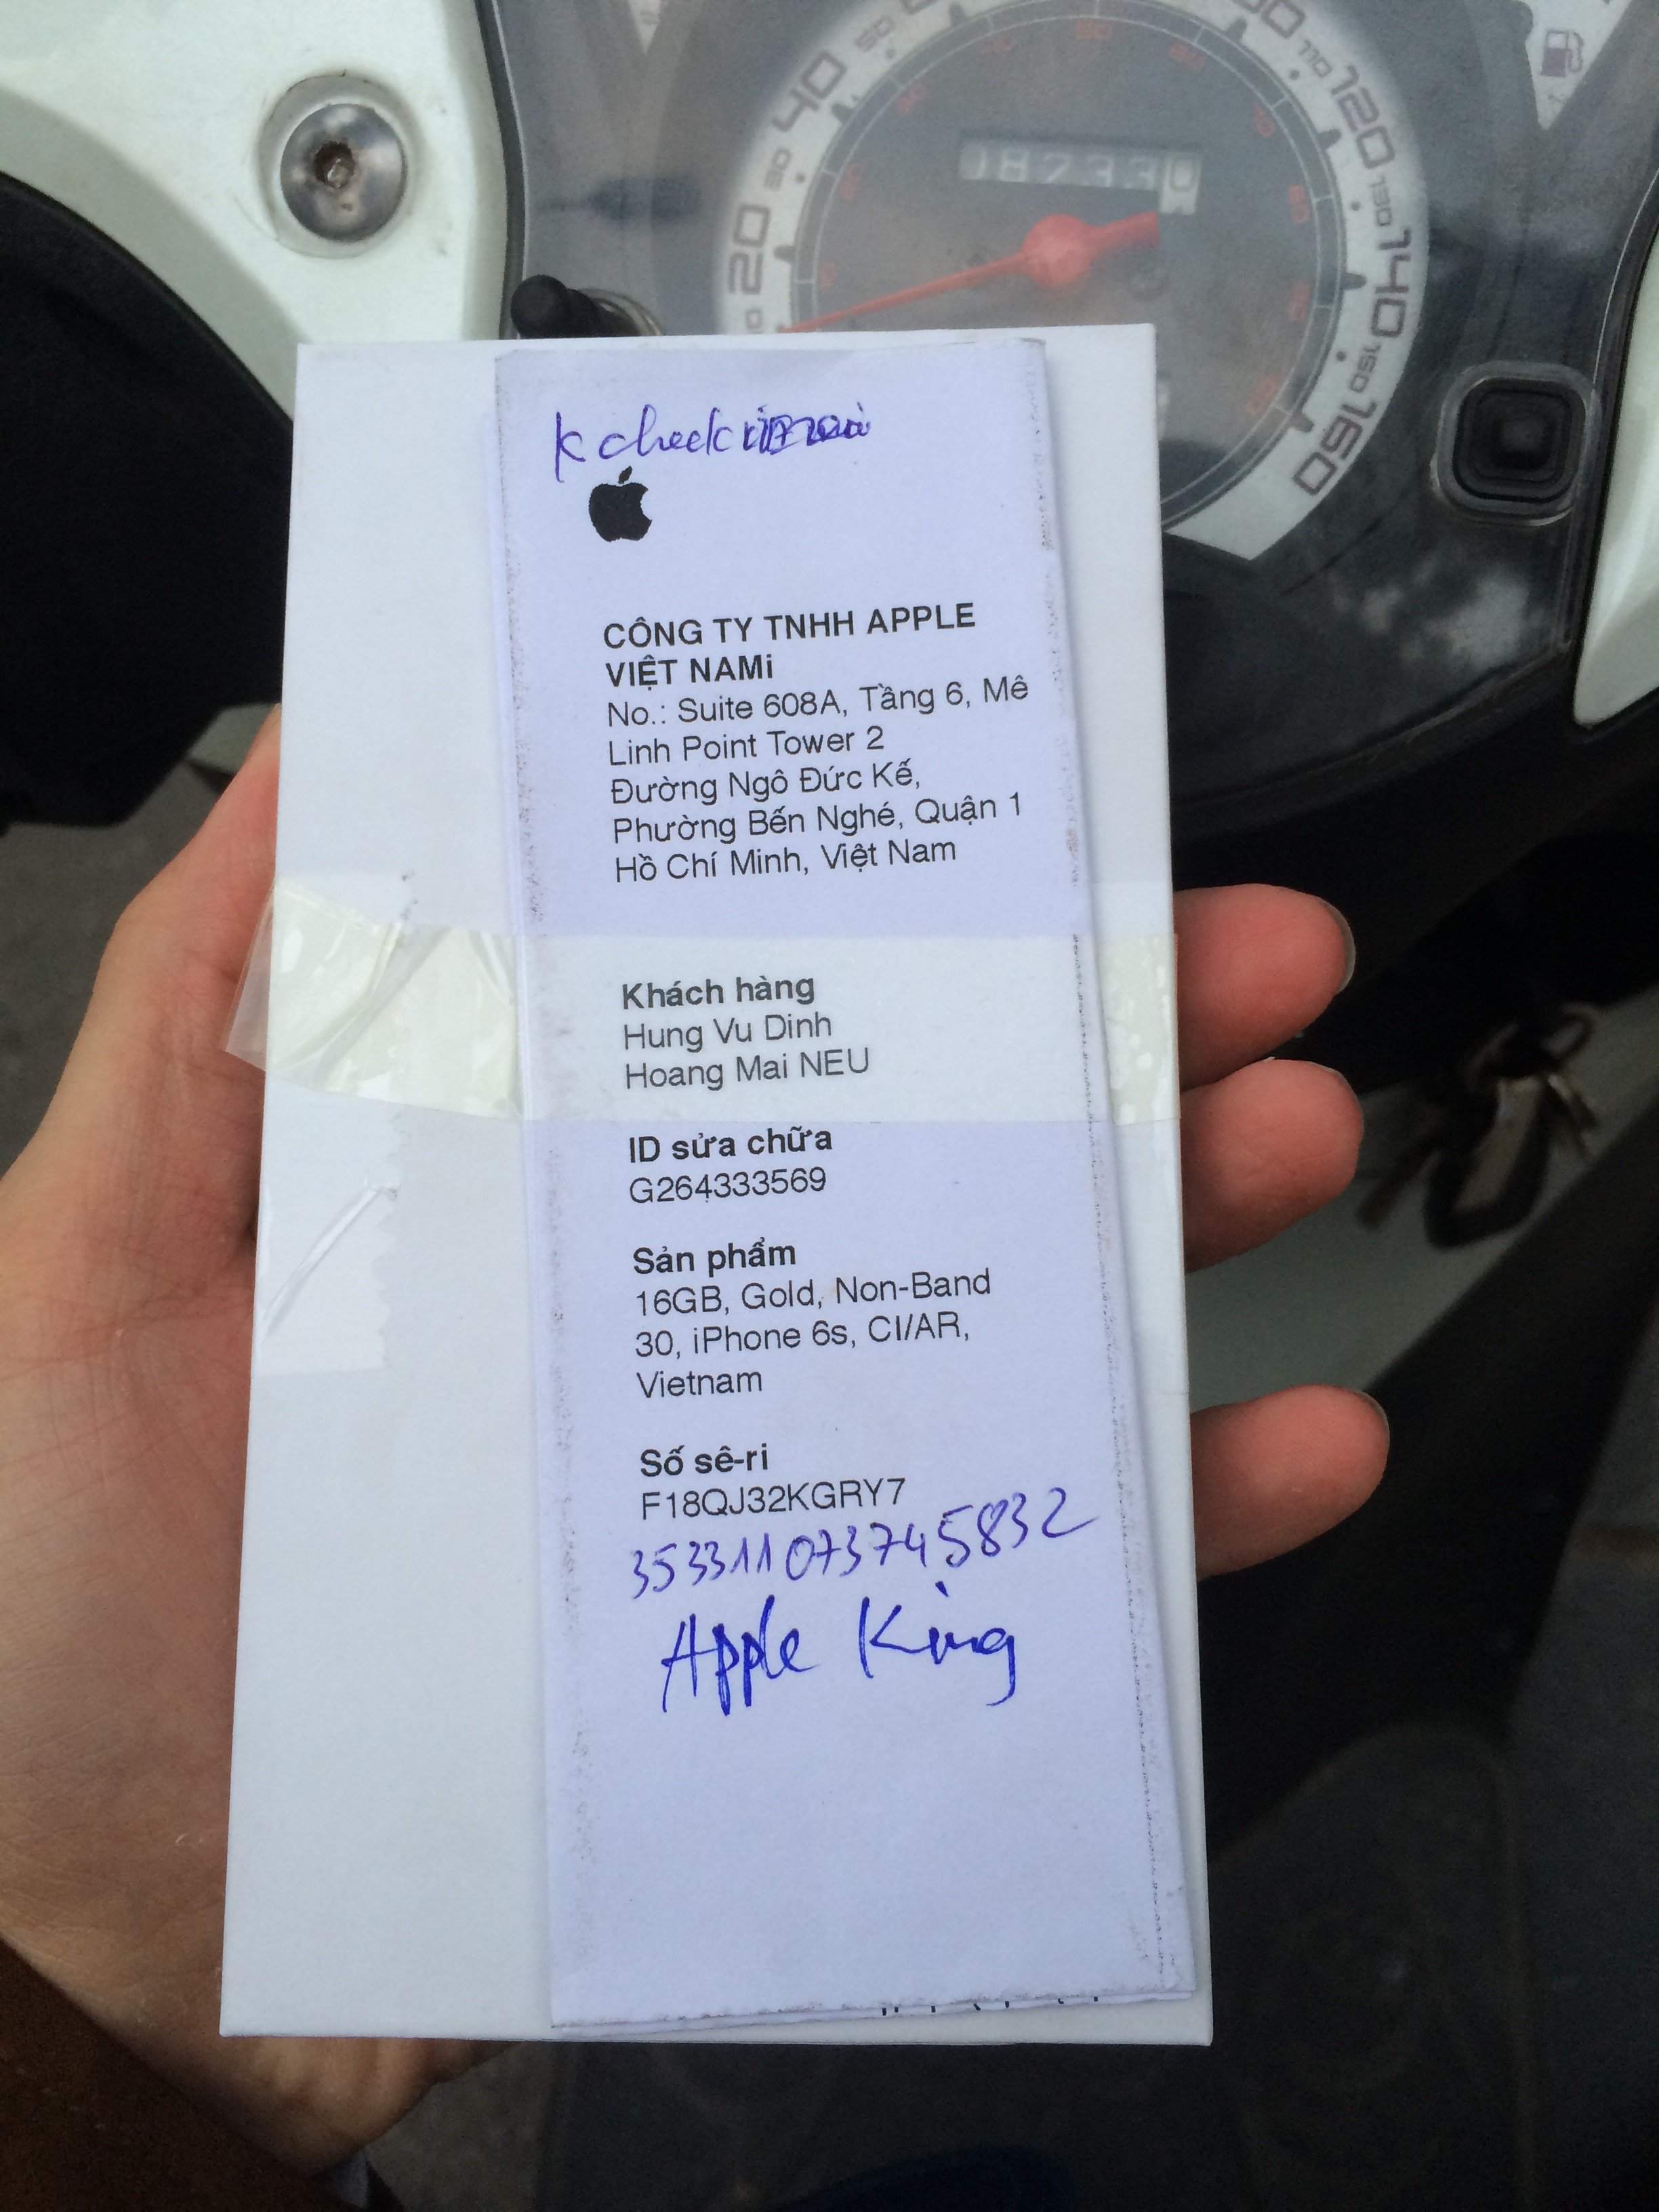 40
120
20
140
160
K check
CÔNG TY TNHH APPLE
VIỆT NAMi
No.: Suite 608A, Tầng 6, Mê
Linh Point Tower 2
Đường Ngô Đức Kế,
Phường Bến Nghé, Quận 1
Hồ Chí Minh, Việt Nam
Khách hàng
Hung Vu Dinh
Hoang Mai NEU
ID sửa chữa
G264333569
Sản phẩm
16GB, Gold, Non-Band
30, iPhone 6s, CI/AR,
Vietnam
Số sê-ri
F18QJ32KGRY7
353311073745832
Apple King